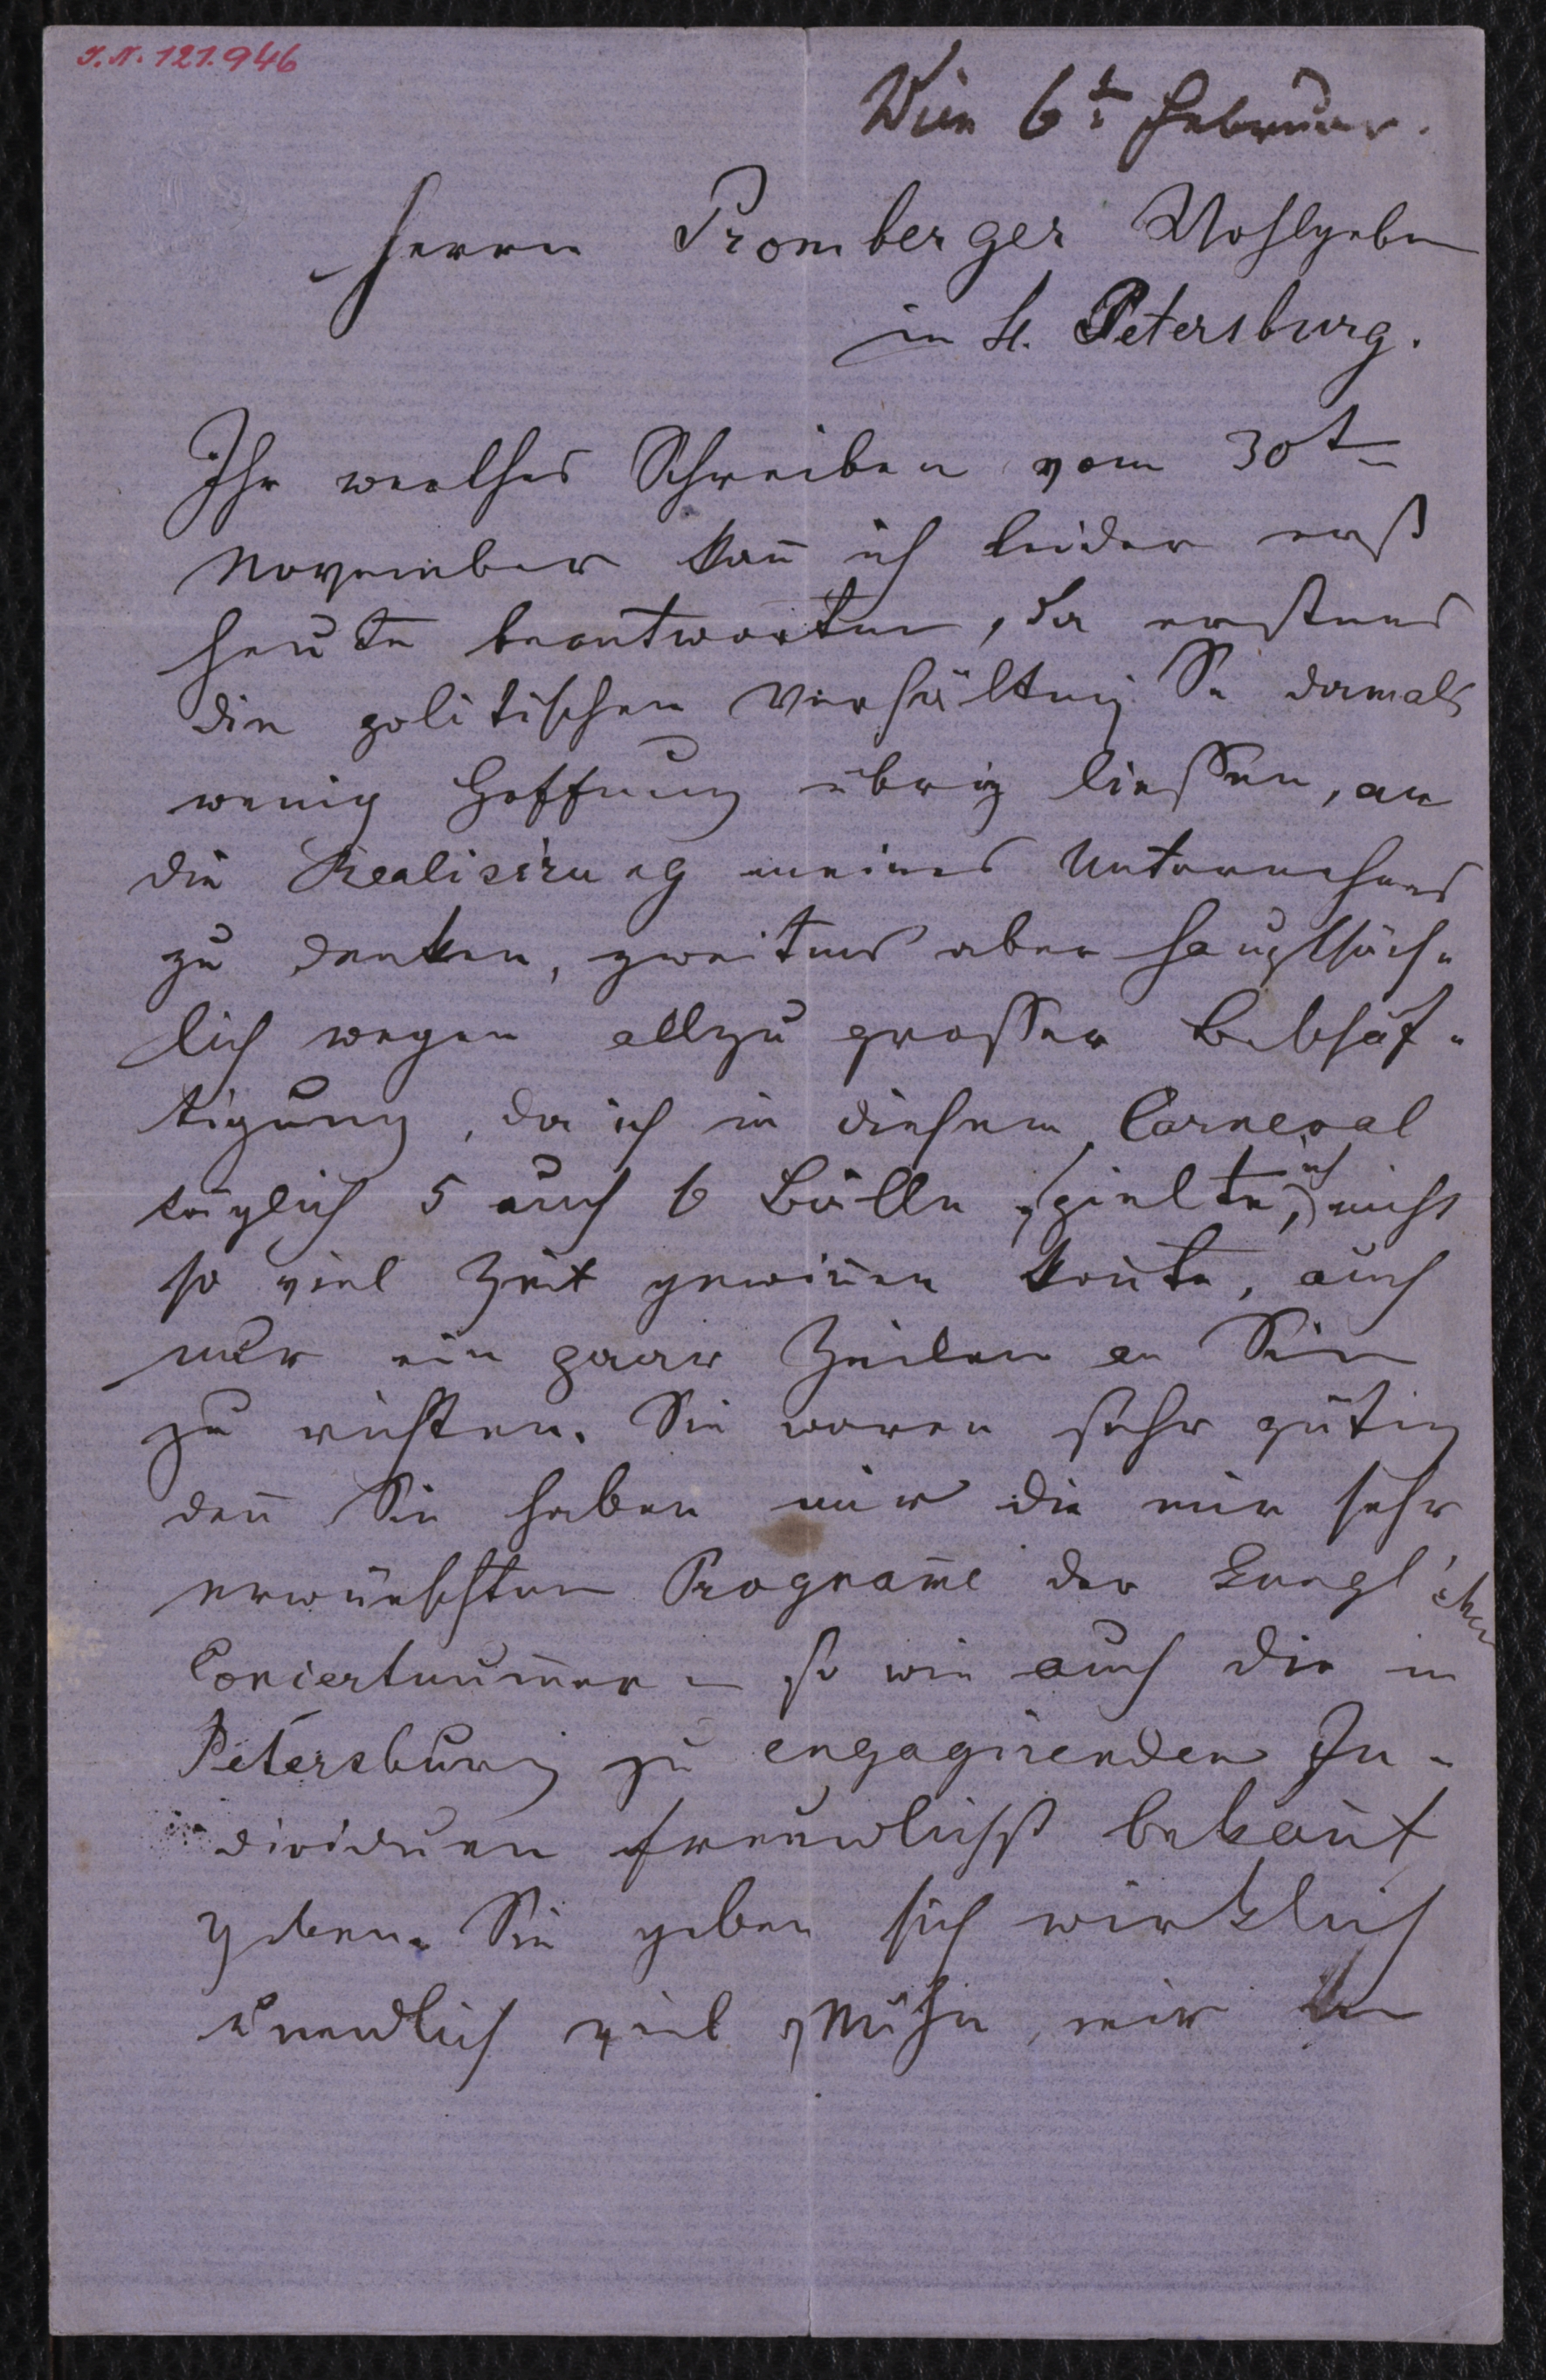 I.N. 121.946
Wien 6t Februar.
Herrn Promberger Wohlgeborn
in St. Petersburg.
Ihr werthes Schreiben vom 30t
November kañ ich leider erst
heute beantworten, da erstens
die politischen Verhältniße damals
wenig Hoffnung übrig ließen, an
die Realisirung meines Unternehmens
zu denken, zweitens aber hauptsäch-
lich wegen allzu großer Beschäf-
tigung, da ich in diesem Carneval
täglich 5 auch 6 Bälle spielte, ich nicht
so viel Zeit gewiñen koñte, auch
nur ein paar Zeilen an Sie
zu richten. Sie waren sehr gütig
deñ Sie haben mir die mir sehr
erwünschten Programe der Gungl'schen
Concertnum̄ern so wie auch die in
Petersburg zu engagirenden In-
dividuen freundlichst bekañt
geben. Sie geben sich wirklich
unendlich viel Mühe, mir